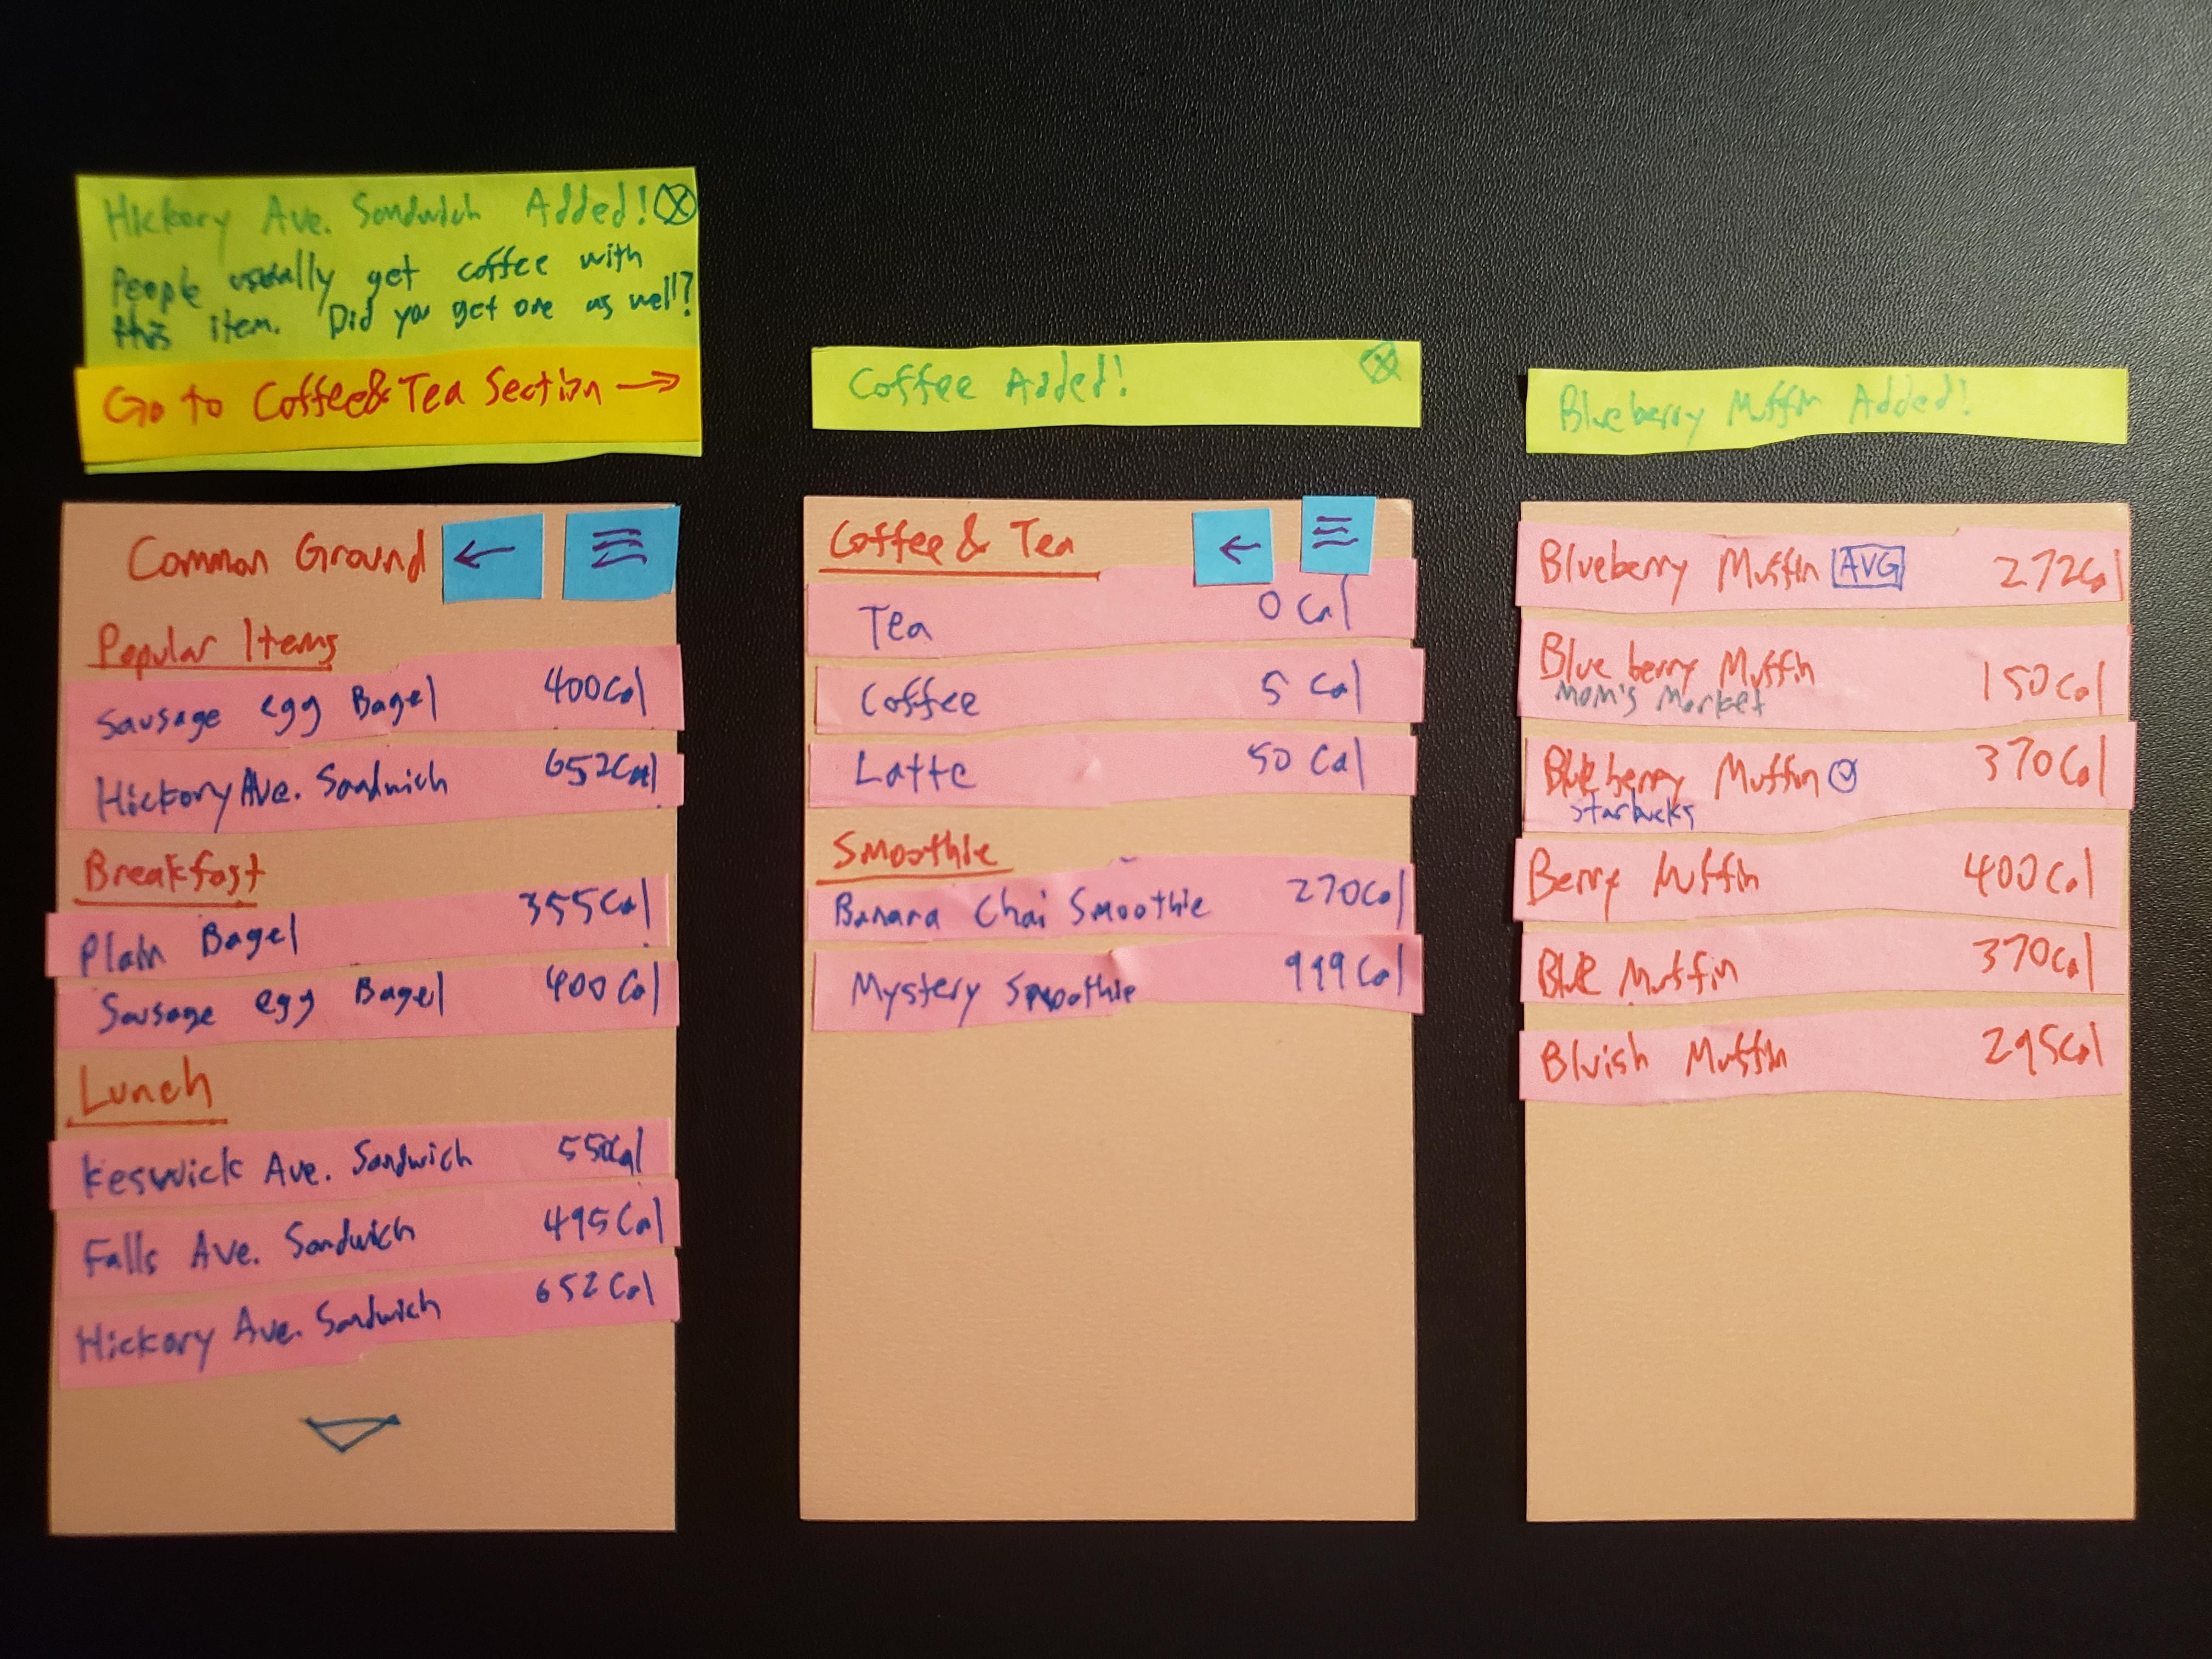 Hickory Ave. Sandwich Added!
People usually get coffee with
this item. Did you get one as well?
Go to Coffee & Tea Section →
Common Ground ←
Popular Items
Sausage egg Bagel 400 Cal
Hickory Ave. Sandwich 652 Cal
Breakfast
Plain Bagel 355 Cal
Sausage egg Bagel 400 Cal
Lunch
Keswick Ave. Sandwich
Falls Ave. Sandwich 495 Cal
Hickory Ave. Sandwich 652 Cal
Coffee Added!
Coffee & Tea ←
Tea 0 Cal
Coffee 5 Cal
Latte 50 Cal
Smoothie
Banana Chai Smoothie 270 Cal
Mystery Smoothie 999 Cal
Blueberry Muffin Added!
Blueberry Muffin AVG 272 Cal
Blueberry Muffin 150 Cal
Mom's Market
Blueberry Muffin 370 Cal
Starbucks
Berry Muffin 400 Cal
Blue Muffin 370 Cal
Bluish Muffin 295 Cal